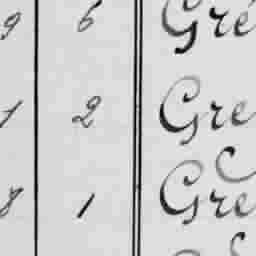 9 6 Gre
1 2 Gre
8 1 Gre